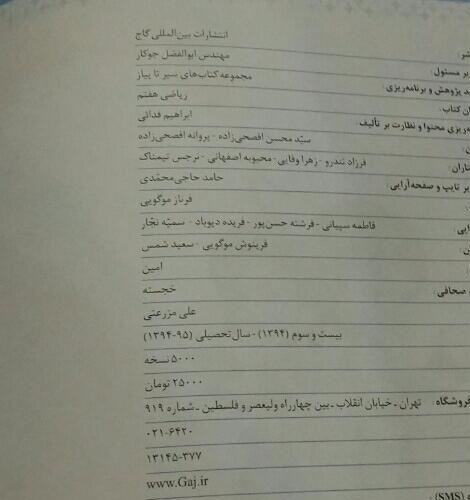 انتشارات بین‌المللی گاج
مهندس ابوالفضل جوکار
مجموعه کتاب‌های سیر تا پیاز
ریاضی هفتم
ابراهیم فدائی
سیّد محسن افصحی‌زاده - پروانه افصحی‌زاده
فرزاد تندرو - زهرا وفایی - محبوبه اصفهانی - نرجس تیمناک
حامد حاجی‌محمّدی
فرناز موگویی
فاطمه سیپانی - فرشته حسن‌پور - فریده دیوباد - سمیّه نجّار
فرینوش موگویی - سعید شمس
امین
صحافی: خجسته
علی مزرعتی
بیست و سوم (۱۳۹۴) - سال تحصیلی (۹۵-۱۳۹۴)
۵۰۰۰ نسخه
۲۵۰۰۰ تومان
فروشگاه: تهران ـ خیابان انقلاب ـ بین چهارراه ولیعصر و فلسطین ـ شماره ۹۱۹
۰۲۱-۶۴۲۰
۱۳۱۴۵-۳۷۷
www.Gaj.ir
(SMS)